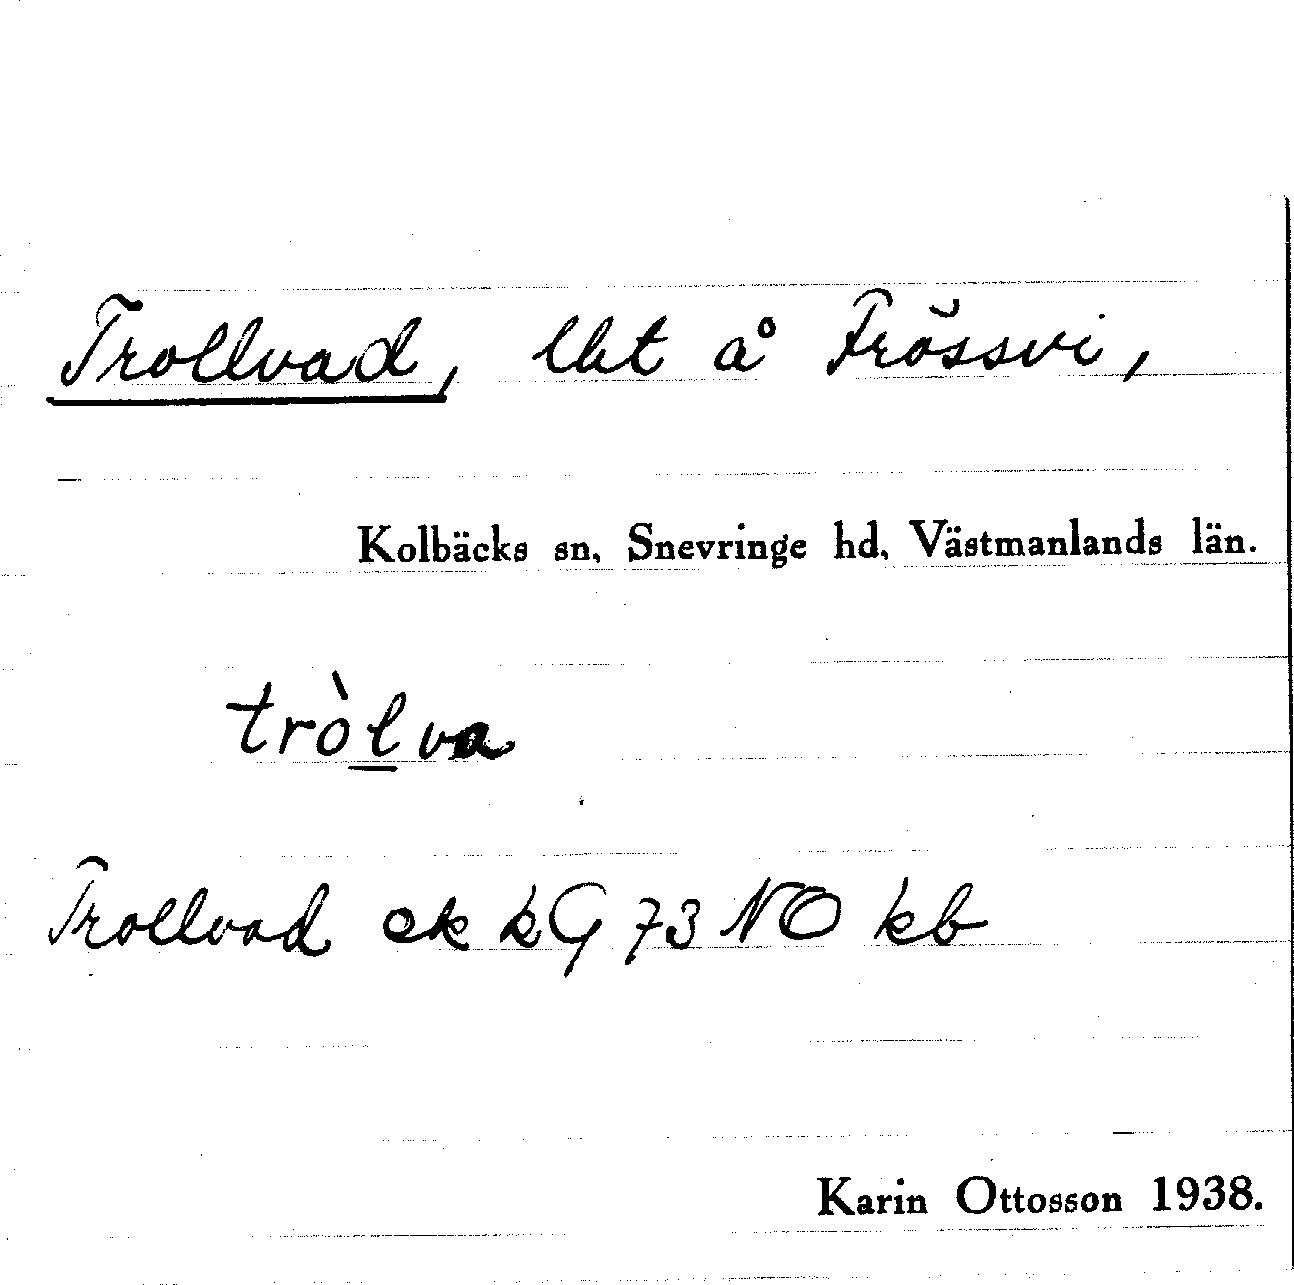 Trollvad, lht å Frössvi,
Kolbäcks sn, Snevringe hd, Västmanlands län.
tròlva
Trollvad ek kG 73 NO kb
Karin Ottosson 1938.